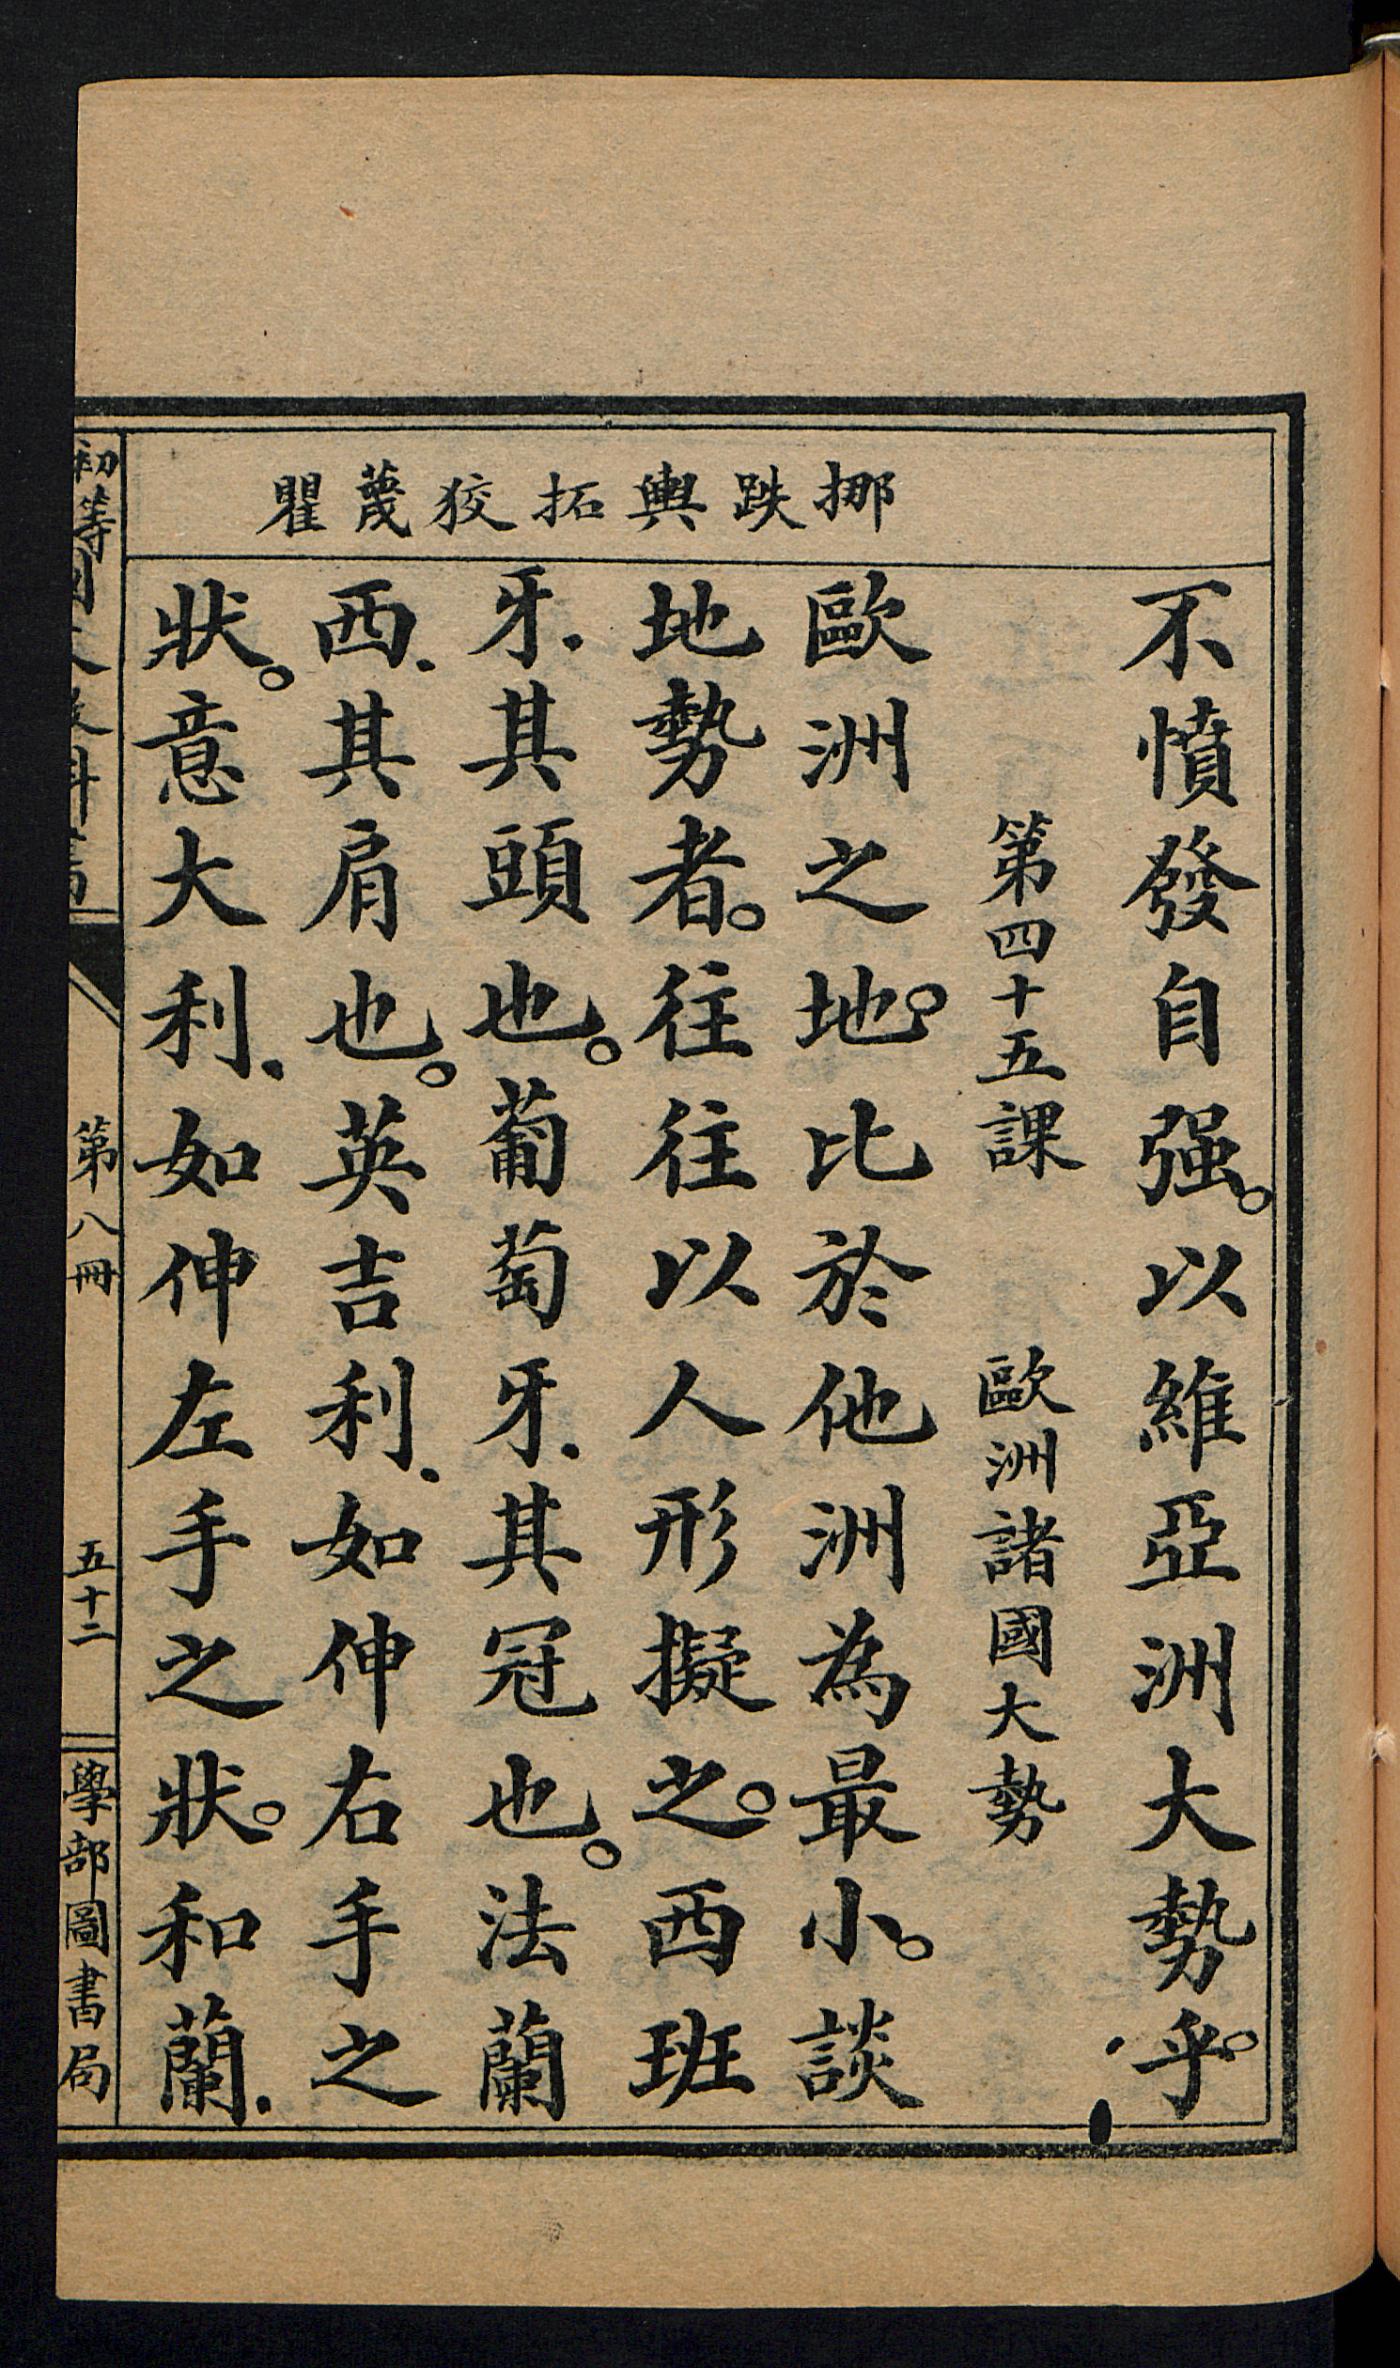 挪跌輿拓狡蔑瞿
不憤發自强。以維亞洲大勢乎。
第四十五課　歐洲諸國大勢
歐洲之地。比於他洲為最小。談
地勢者。往往以人形擬之。西班
牙.其頭也。葡萄牙.其冠也。法蘭
西.其肩也。英吉利.如伸右手之
狀。意大利.如伸左手之狀。和蘭.
初等國文教科書
第八冊
五十二
學部圖書局